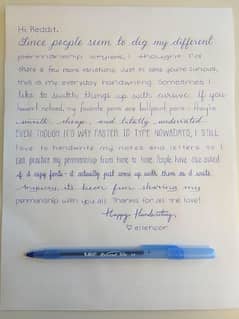 Hi Reddit,
Since people seem to dig my different
penmanship styles, I thought I'd
share a few more variations. Just in case you're curious,
this is my everyday handwriting. Sometimes I
like to switch things up with cursive. If you
haven't noticed, my favorite pens are ballpoint pens - they're
smooth, cheap, and totally underrated.
EVEN THOUGH IT'S WAY FASTER TO TYPE NOWADAYS, I STILL
love to handwrite my notes and letters so I
can practice my penmanship from time to time. People have also asked
if I copy fonts - I actually just come up with them as I write.
Anyway, it's been fun sharing my
penmanship with you all. Thanks for all the love!
Happy Handwriting,
♡ ellencor
BIC